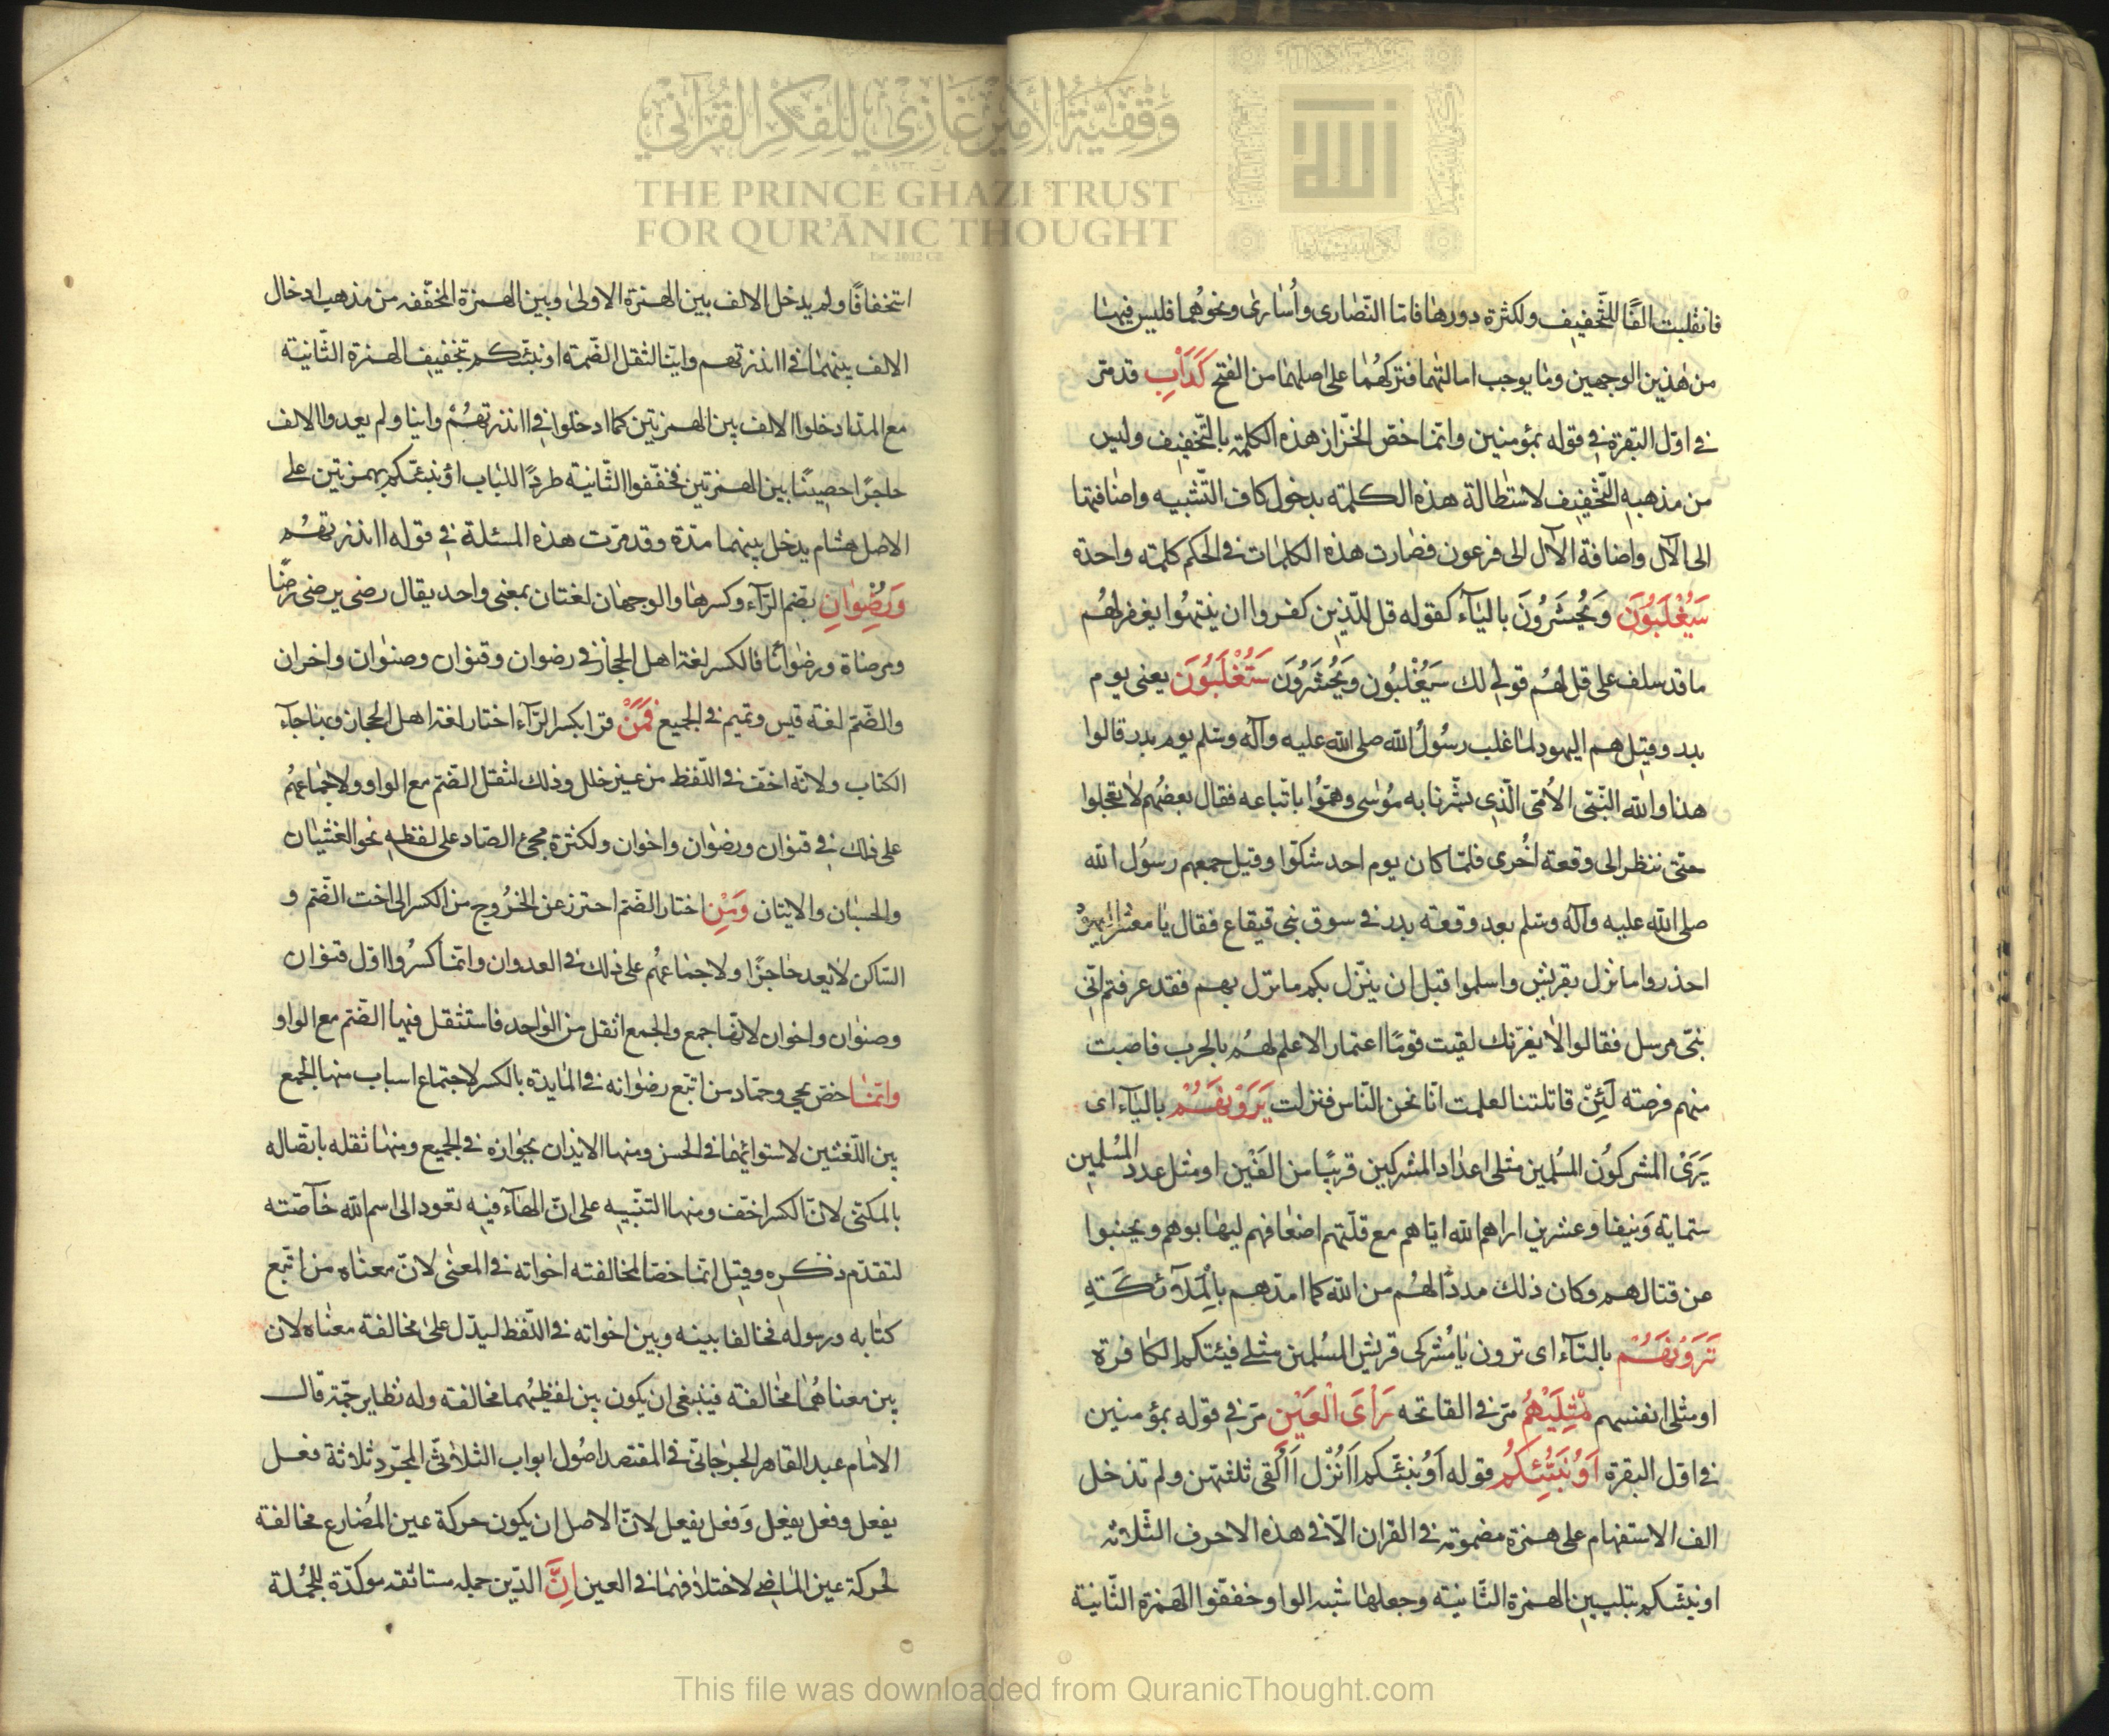 وقفية الأمير غازي للفكر القرآني
THE PRINCE GHAZI TRUST
FOR QUR'ĀNIC THOUGHT
فانقلبت الفًا للتّخفيف ولكثرة دورها فامّا النّصارى وأُسَارى ونحوُهُما فليس فيهما
من هٰذين الوجهين وما يوجب امالتهما فتركهُمٰا على اصلهما من الفتح كَدَأْبِ قد مرّ
في اوّل البقرة في قوله بمؤمنين وانّما خصّ الخزّاز هذه الكلمة بالتّخفيف وليس
من مذهبه التّخفيف لاستطالة هذه الكلمة بدخول كاف التّشبيه واضافتها
الى الآل واضافة الآل الى فرعون فصٰارت هذه الكلمات في الحكم كلمة واحدة
سَيُغْلَبُونَ وَيُحْشَرُونَ باليٰآء كقوله قل للّذين كفروا ان ينتهُوا يغفر لهُم
ما قد سلف على قل لهُم قولي لك سَيُغْلَبُون وَيُحْشَرُونَ سَتُغْلَبُونَ يعنى يوم
بدر وقيل هم اليهود لمّا غلب رسُولُ الله صلى الله عليه وآله وسلم يوم بدر قالوا
هذا والله النّبىّ الأُمّى الّذي بشّرنا به مُوسٰى وهمّوُا باتّباعه فقال بعضُهم لا تعجلوا
حتّى ننظر الى وقعة اُخْرى فلمّا كان يوم احد شكّوا وقيل جمعهم رسُول الله
صلى الله عليه وآله وسلم بعد وقعة بدر في سوق بنى قيقاع فقال يا معشر اليهود
احذروا ما نزل بقريش واسلموا قبل ان ينزّل بكم ما نزل بهم فقد عرفتم انّى
نبىّ مرسل فقالوا لا يغرّنك لقيت قومًا اغمار الا علم لهُم بالحرب فاصبت
منهم فرصة لَئِنْ قاتلتنا لعلمت انّا نحن النّاس فنزلت يَرَوْنَهُمْ باليٰآء اى
يَرَىْ المشركُون المسُلمين مثلى اعدٰاد المشركين قريبًا من الفَيْن او مثل عدد المسُلمين
ستماية وَنيفا وعشرين اراهم الله ايّاهم مع قلّتهم اضعٰافهم ليهٰابوهم ويجنبوا
عن قتالهم وكان ذلك مددًا لهُم من الله كما امدّهم بِالْمَلآئكَةِ
تَرَوْنَهُمْ بالتّآء اى ترون يا مُشركى قريش المسُلمين مثلى فيئتكم الكٰافرة
او مثلى انفسهم مِثْلَيْهِمْ مرّ في الفاتحه رَأْىَ الْعَيْنِ مرّ في قوله بمؤمنين
في اوّل البقرة اَؤُنَبِّئُكُمْ قوله اَوُنبئّكم اَاُنْزل اَاُلقى ثلثتهن ولم تدخل
الف الاستفهام على همزة مضمومة في القران الّا في هذه الاحرف الثّلاثة
اونبئّكم بتليين الهمزة الثّانية وجعلها شبه الواو خفّفوا الهَمزة الثّانية
استخفافًا ولم يدخل الالف بين الهمزة الاولىٰ وبين الهمزة المخفّفه من مذهبه ادخال
الالف بينهمٰا في اانذرتهم وائنّا لثقل الضّمة اونبئّكم بتخفيف الهمزة الثّانية
مع المدّ ادخلوا الالف بين الهمزتين كما ادخلوا في اانذرتهُمْ وائنا ولم يعدوا الالف
حاجزًا حصينًا بين الهمزتين فخفّفوا الثّانية طردًا للبٰاب اؤنبئّكم بهمزتين على
الاصل هشام يدخل بينهما مدّة وقد مرّت هذه المسئلة في قوله اانذرتهُم
وَرُضْوٰانِ بضم الرّآء وكسرهٰا والوجهٰان لغتان بمعنى واحد يقال رضى يرضى رضًا
ومرضاة ورضوانًا فالكسر لغة اهل الحجاز في رضوان وقنوٰان وصنوٰان واخوان
والضّمّ لغة قيس وتميم في الجميع فَمَنْ قرأ بكسر الرّآء اختار لغة اهل الحجاز وبها جآء
الكتاب ولانّه اخفّ في اللّفظ من غير خلل وذلك لثقل الضّم مع الواو ولاجتماعهُم
على ذلك في قنوٰان ورضوٰان واخوان ولكثرة مجئ الصّاد على لفظه نحو الغشيٰان
والحسبٰان والاتيان وَمَنِ اختار الضّم احترز عن الخرُوج من الكسر الى اخت الضّم و
السّاكن لا يعد حاجزًا ولاجتماعهُم على ذلك في العدوان وانّما كسرُوا اوّل قنوٰان
وصنوٰان واخوان لانّها جمع والجمع اثقل من الوٰاحد فاستثقل فيها الضّم مع الواو
وانّمٰا خصّ يحيى وحمّاد من اتّبع رضوٰانه في المٰايدة بالكسر لاجتماع اسباب منها الجمع
بين اللّغتين لاستوائهمٰا في الحسن ومنها الايذان بجوازه في الجميع ومنها ثقله باتّصاله
بالمكنّى لانّ الكسر اخّف ومنها التنبيه على انّ الهآء فيه تعود الى اسم الله خآصّته
لتقدّم ذكره وقيل انّما خصّا لمخالفته اخواته في المعنٰى لانّ معنٰاه من اتّبع
كتابه ورسوله فخالفا بينه وبين اخواته في اللّفظ ليدّل علىٰ مخالفة معنٰاه لان
بين معناهُمٰا مخالفة فينبغى ان يكون بين لفظيهُما مخالفة وله نظاير جمّة قال
الامٰام عبد القاهر الجرجانىّ في المقتصد اصُول ابواب الثلاثىّ المجّرد ثلاثة فعل
يفعل وفعل يفعِل وَفعل يفعل لانّ الاصل ان يكون حركة عين المُضارع مخالفة
لحركة عين المٰاضى لاختلافهمٰا في العين اِنَّ الدّين جمله مستانفه موكدّة للجُملة
This file was downloaded from QuranicThought.com